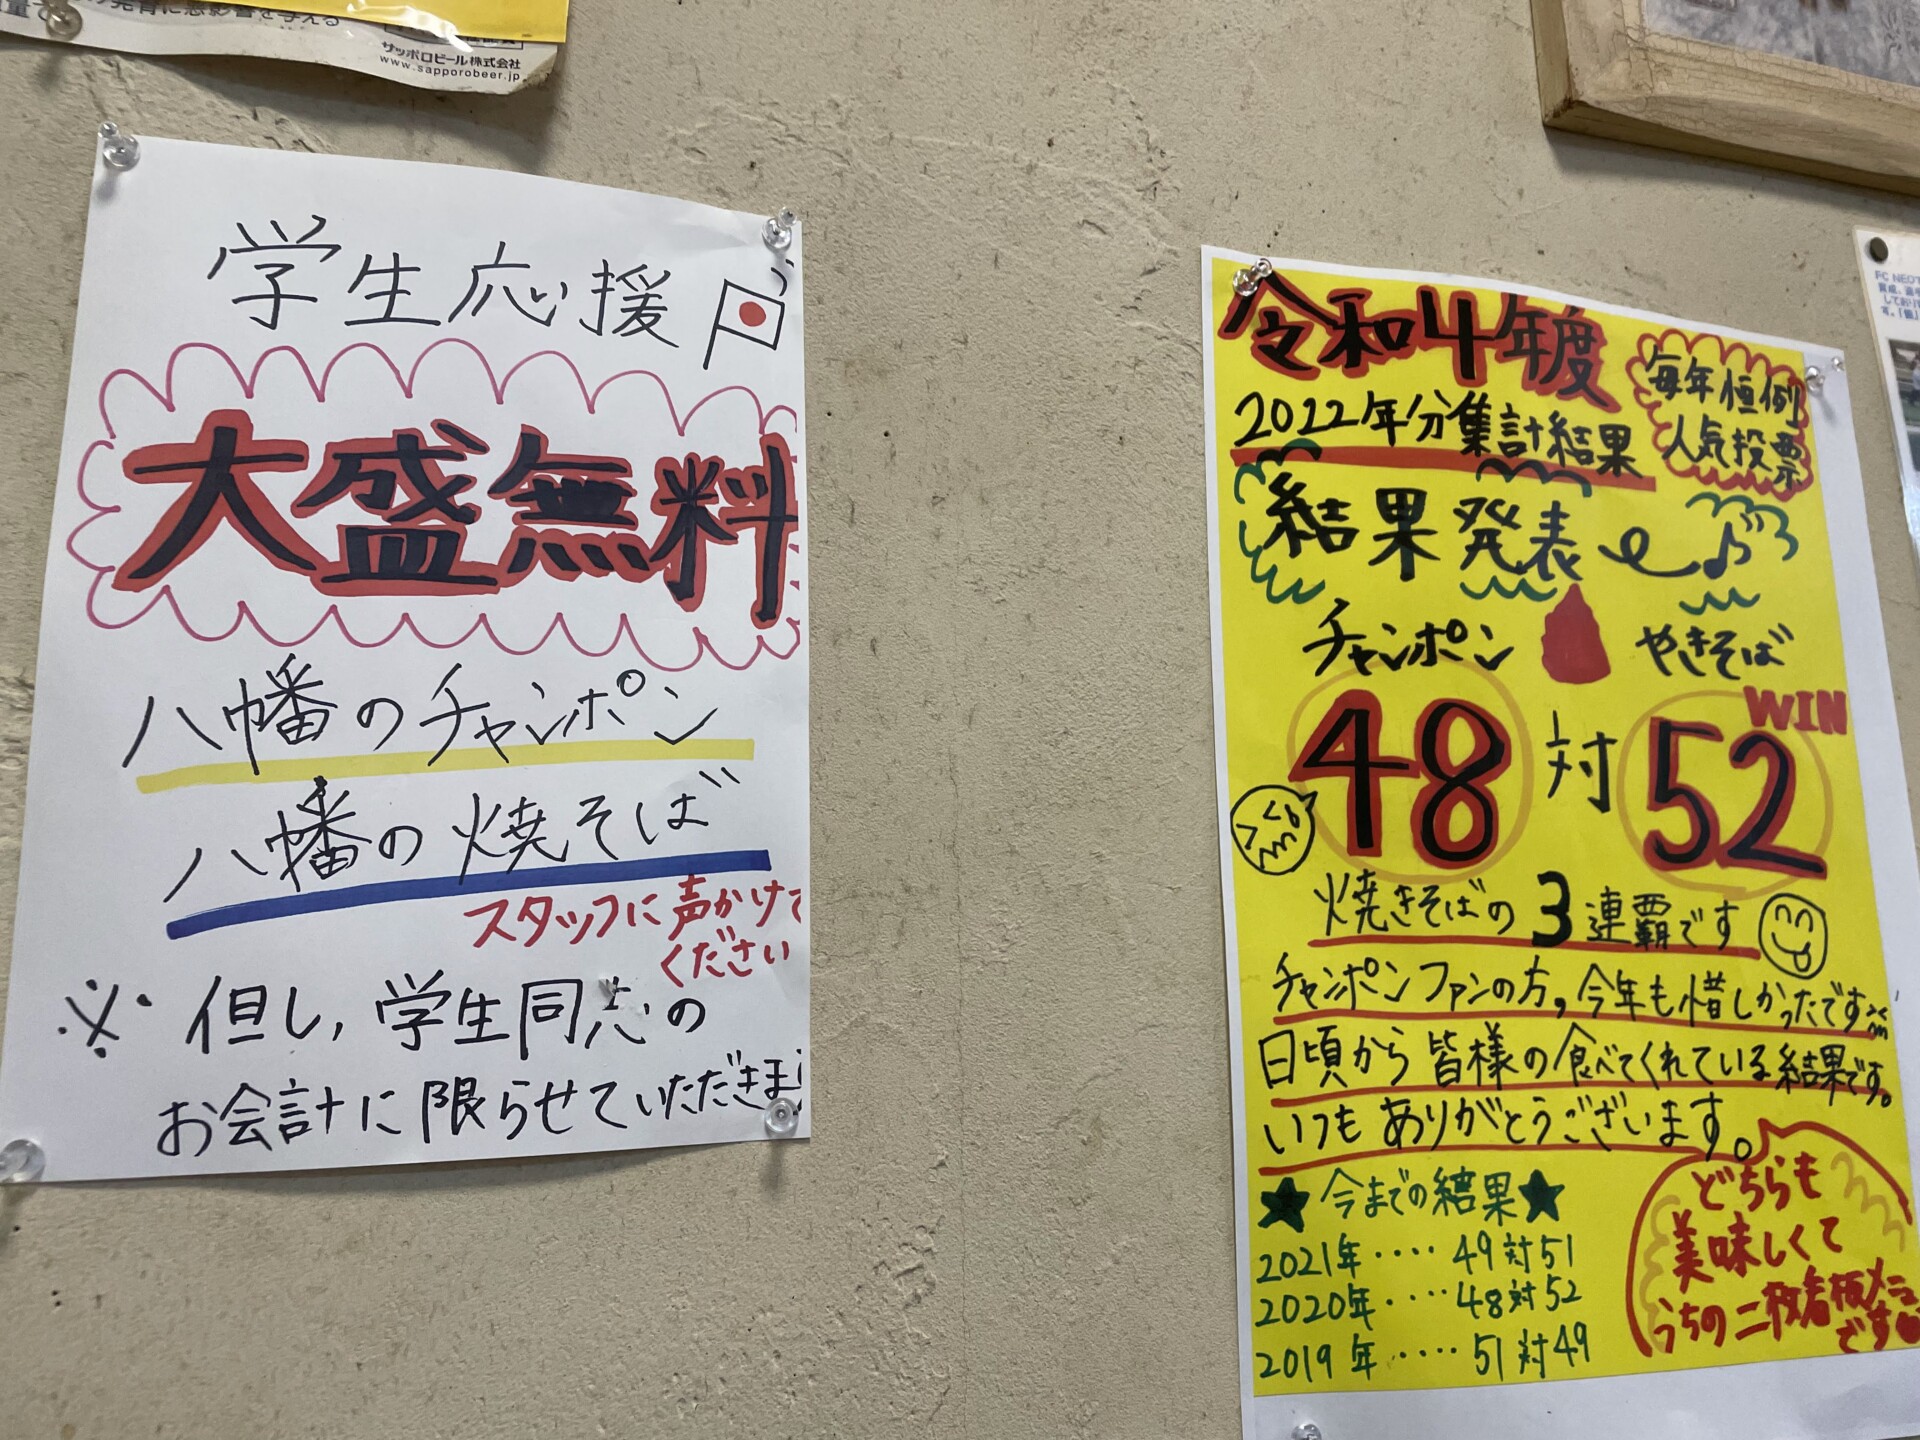 発育に悪影響を与える
サッポロビール株式会社
www.sapporobeer.jp
学生応援
大盛無料
八幡のチャンポン
八幡の焼そば
スタッフに声かけて
ください
※但し,学生同志の
お会計に限らせていただきます
令和4年度
2022年分集計結果
毎年恒例
人気投票
結果発表
チャンポン
やきそば
48対52
WIN
焼きそばの3連覇です
チャンポンファンの方,今年も惜しかったです
日頃から皆様の食べてくれている結果です。
いつもありがとうございます。
★今までの結果★
2021年‥‥49対51
2020年‥‥48対52
2019年‥‥51対49
どちらも
美味しくて
うちの二枚看板メニュー
です
FC NEO